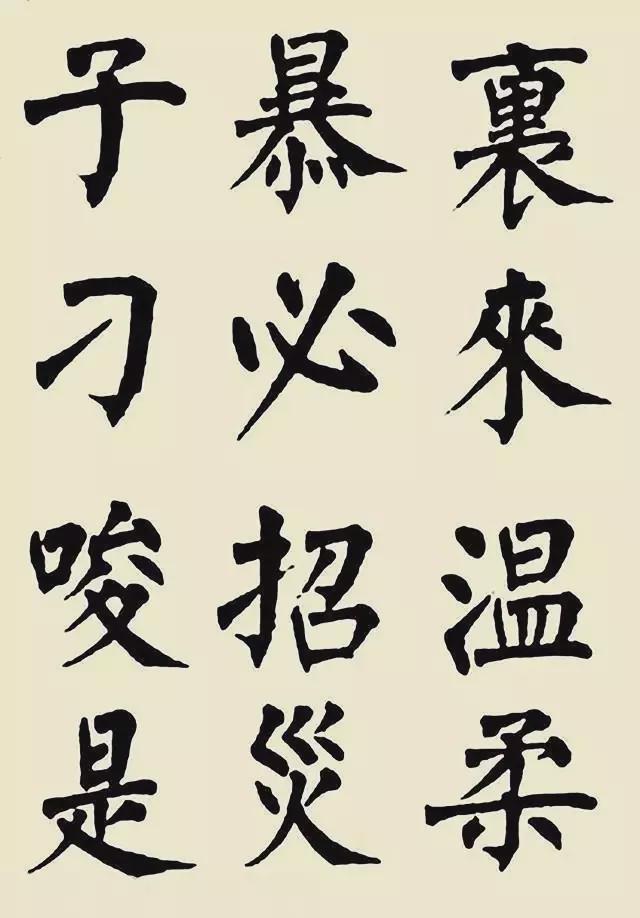 裏來温柔
暴必招災
子刁唆是